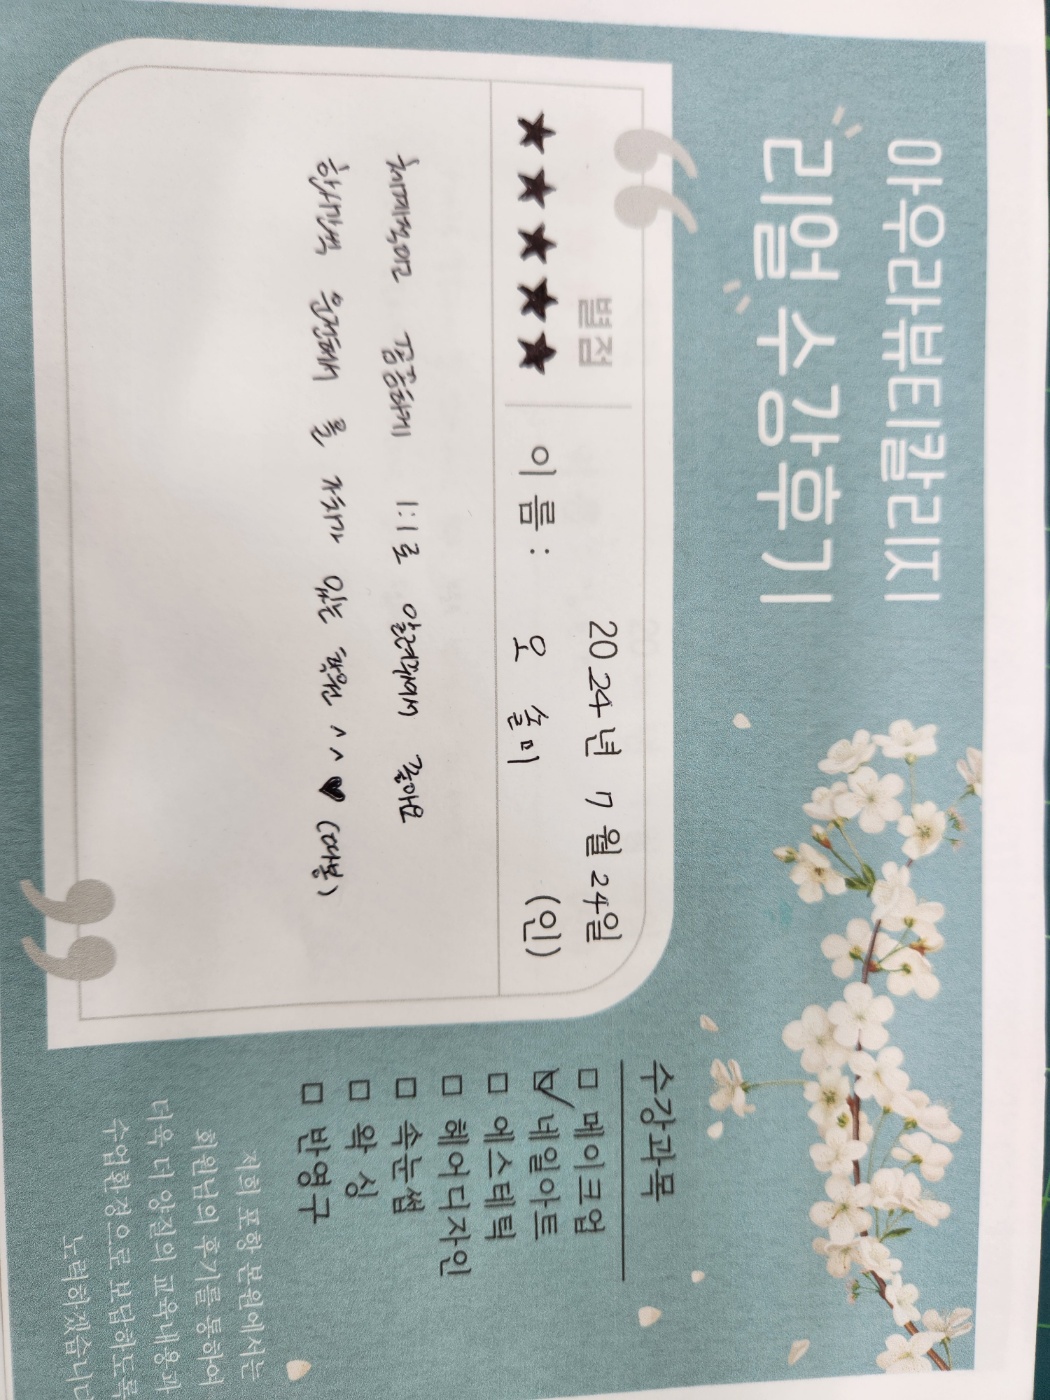 아우라뷰티칼리지
리얼 수강후기
별점
★★★★★
2024년 7월 24일
이름: 오 솔미 (인)
체계적이고 꼼꼼하게 1:1로 알려주셔서 좋아요
학생시험 완전해서 를 자격사 없는 학원 ^^♥ (따봉)
수강과목
□ 메이크업
☑ 네일아트
□ 에스테틱
□ 헤어디자인
□ 속눈썹
□ 왁싱
□ 반영구
저희 포항 본원에서는
회원님의 후기를 통하여
더욱 더 양질의 교육내용과
수업환경으로 보답하도록
노력하겠습니다